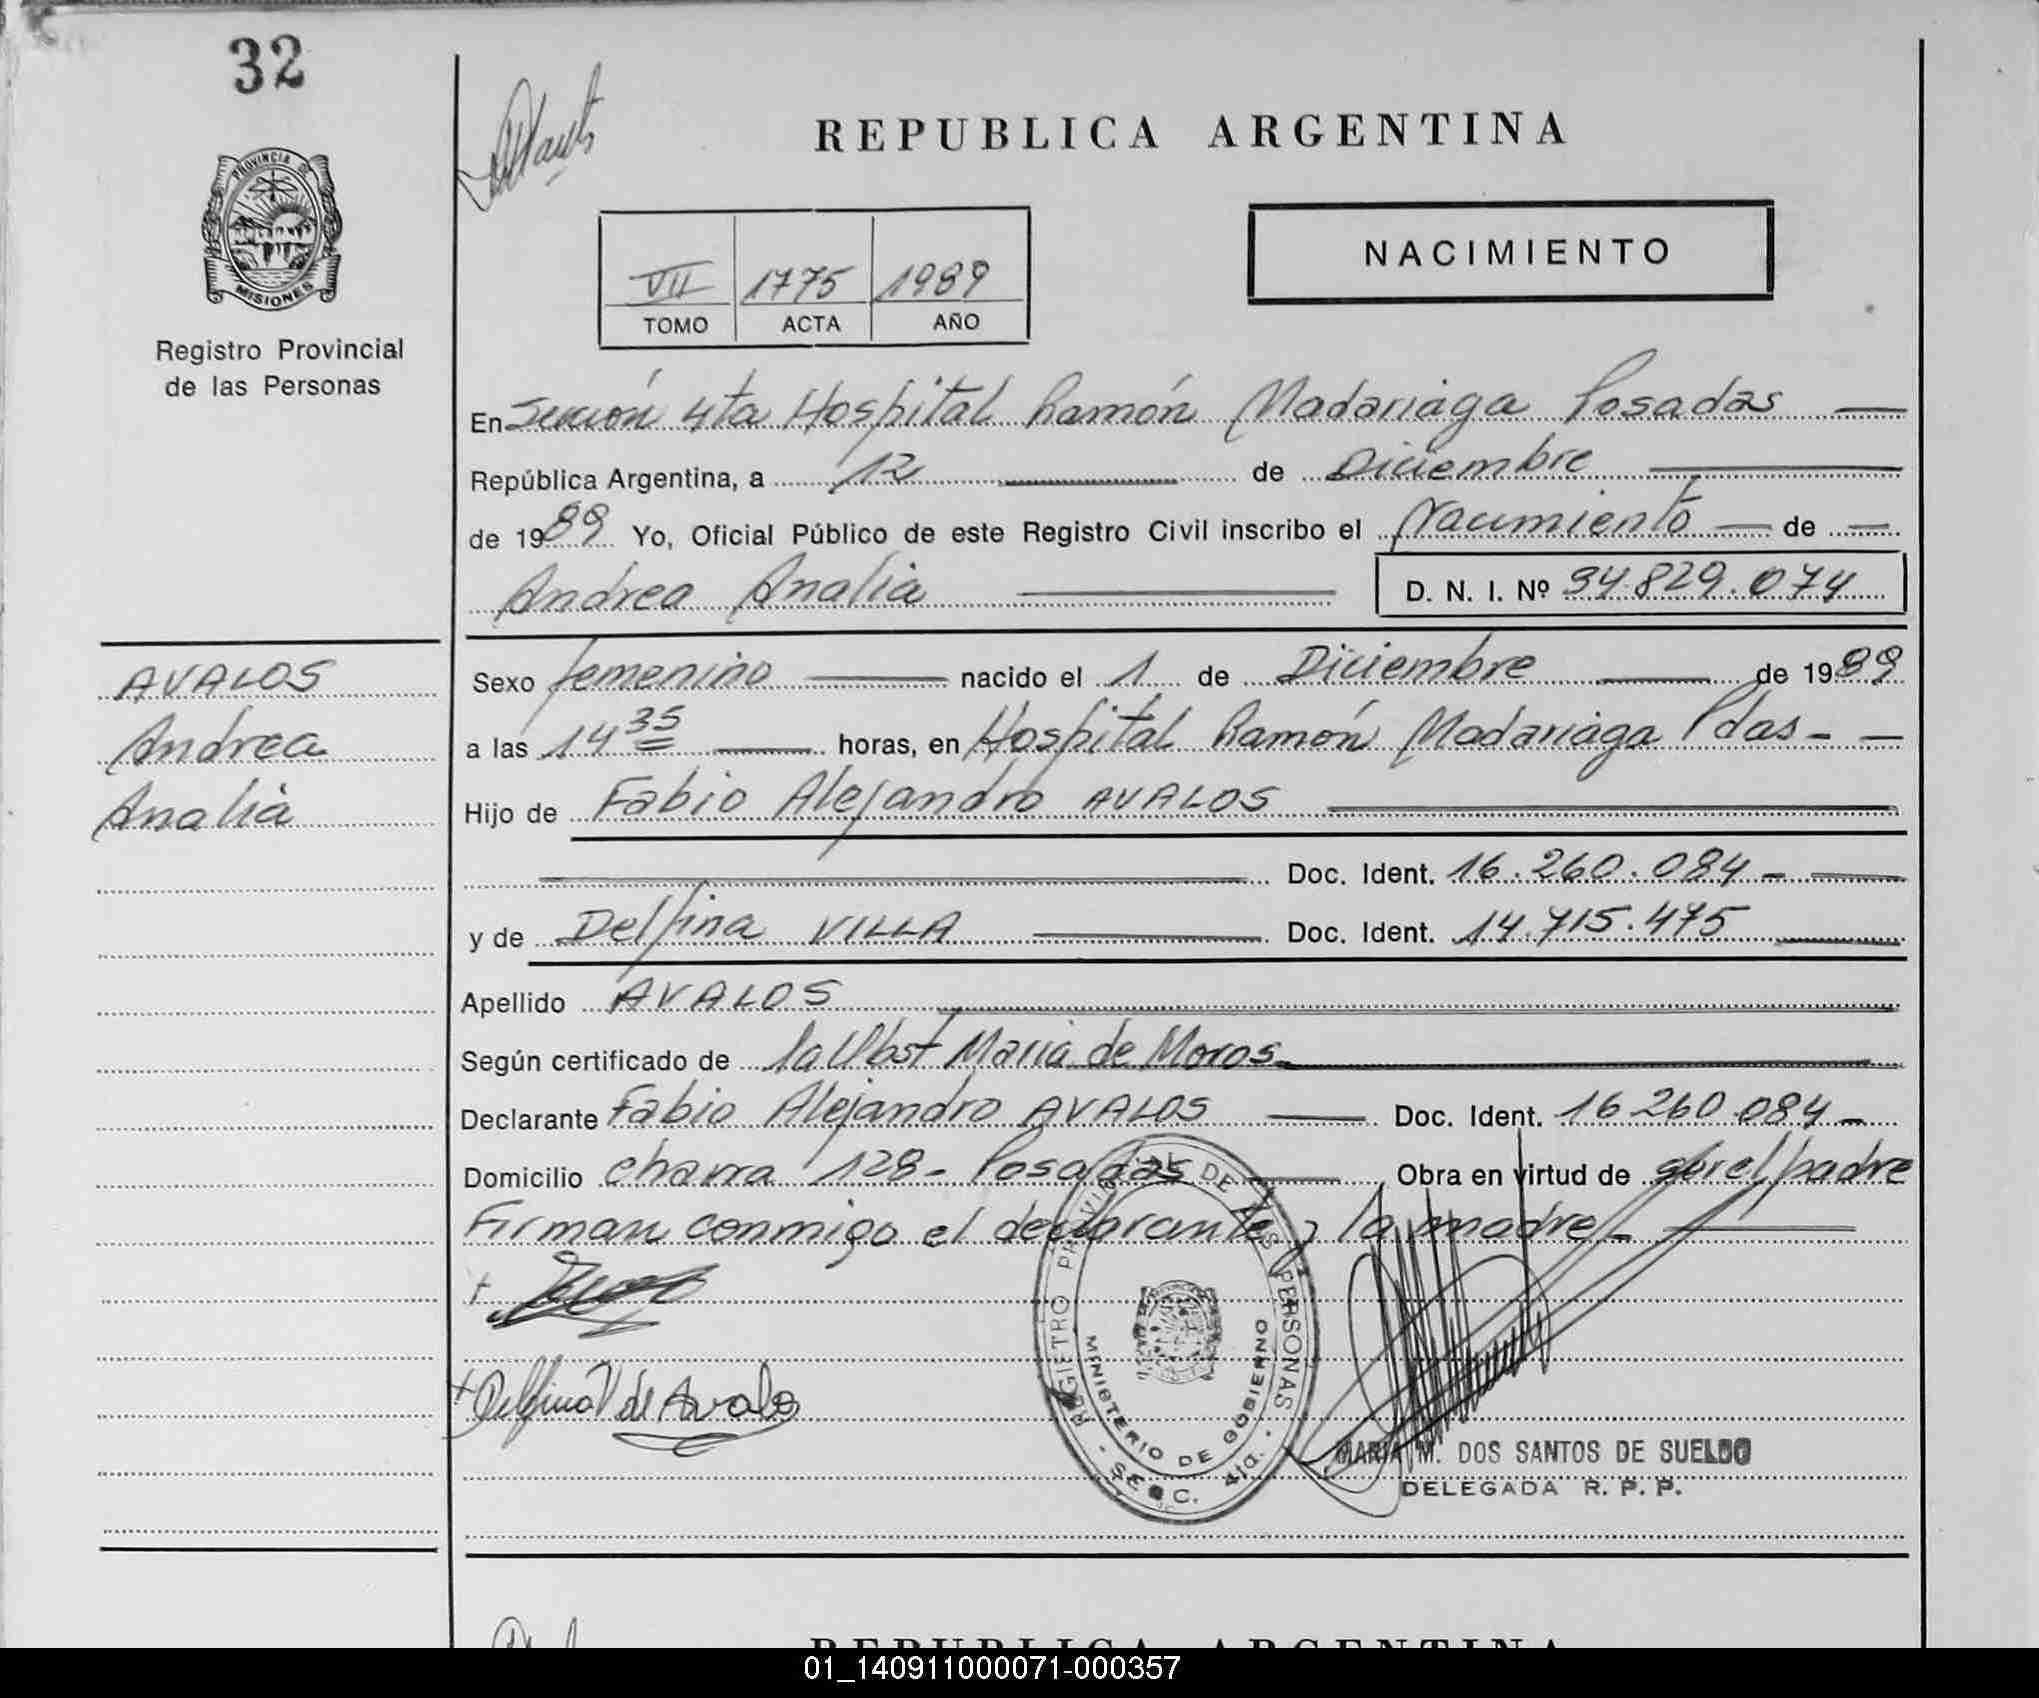 32
PROVINCIA DE
MISIONES
Registro Provincial
de las Personas
REPUBLICA ARGENTINA
NACIMIENTO
VII 1775 1989
TOMO ACTA AÑO
En Sección 4ta Hospital Ramón Madariaga Posadas
República Argentina, a 12 de Diciembre
de 1989 Yo, Oficial Público de este Registro Civil inscribo el Nacimiento de
Andrea Analia D. N. I. Nº 34.829.074
AVALOS
Andrea
Analia
Sexo femenino nacido el 1 de Diciembre de 1989
a las 14 35 horas, en Hospital Ramón Madariaga Pdas
Hijo de Fabio Alejandro AVALOS
Doc. Ident. 16.260.084
y de Delfina VILLA Doc. Ident. 14.715.475
Apellido AVALOS
Según certificado de la Obst Maria de Moros
Declarante Fabio Alejandro AVALOS Doc. Ident. 16 260 084
Domicilio charra 128 - Posadas Obra en virtud de ser el padre
Firman conmigo el declarante y la madre
Delfina V de Avalos
REGISTRO PROVINCIAL DE LAS PERSONAS
MINISTERIO DE GOBIERNO
SECC. 4ta.
MARIA M. DOS SANTOS DE SUELDO
DELEGADA R. P. P.
REPUBLICA ARGENTINA
01_140911000071-000357